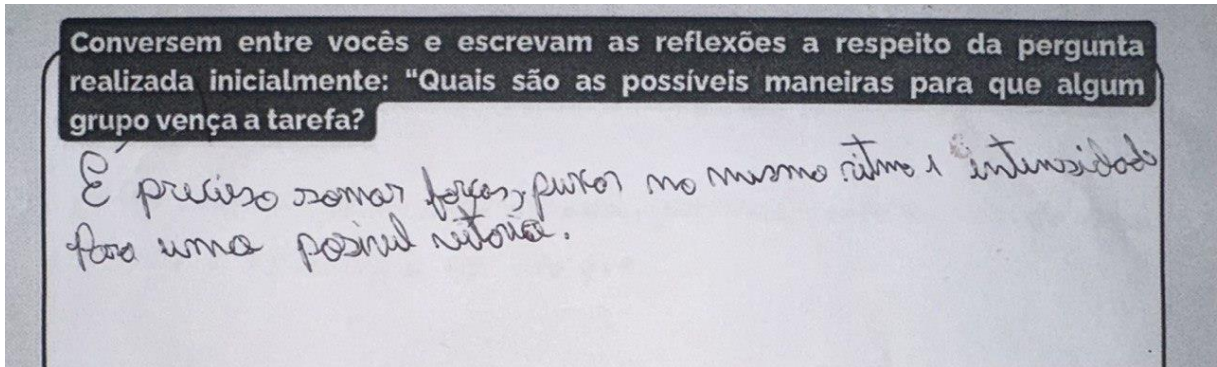 Conversem entre vocês e escrevam as reflexões a respeito da pergunta
realizada inicialmente: “Quais são as possíveis maneiras para que algum
grupo vença a tarefa?
É preciso somar forças, puxar no mesmo ritmo e intensidade
Para uma posivel vitoria.